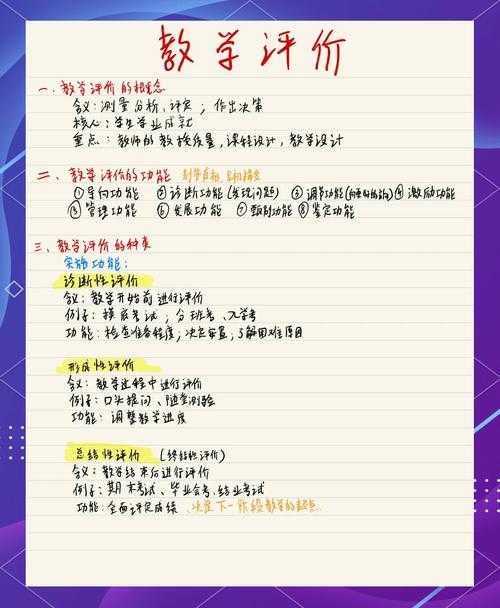 教学评价
一、教学评价的概念
含义：测量分析、评定；作出决策
核心：学生学业成就
重点：教师的教授质量，课程设计，教学设计
二、教学评价的功能
①导向功能 ②诊断功能（发现问题） ③调节功能 ④激励功能
⑤管理功能 ⑥发展功能 ⑦甄别功能 ⑧鉴定功能
三、教学评价的种类
实施功能：
诊断性评价
含义：教学开始前进行评价
例子：摸底考试，分班考、入学考
功能：检查准备程度，决定安置，了解困难原因
形成性评价
含义：教学过程中进行评价
例子：口头提问、随堂测验
功能：调整教学进度
总结性评价（终结性评价）
含义：教学结束后进行评价
例子：期末考试、毕业会考、结业考试
功能：全面评定成绩、决定下一阶段教学的起点